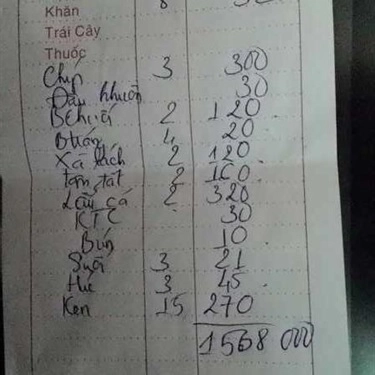 Khăn 8
Trái Cây
Thuốc
Chíp 3 300
Đấu khuôn 30
2 120
Bhán 4 20
Xà lách 2 120
tam tát 2 160
Lẩu cá 2 320
KTC 30
Bún 10
Suã 3 21
Huế 3 45
Ken 15 270
1568 000